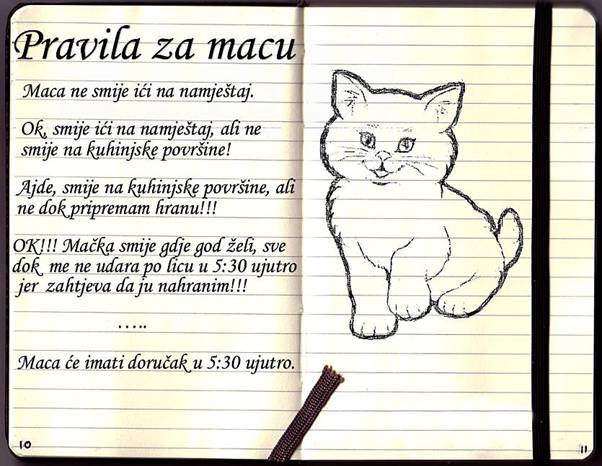 Pravila za macu
Maca ne smije ići na namještaj.
Ok, smije ići na namještaj, ali ne
smije na kuhinjske površine!
Ajde, smije na kuhinjske površine, ali
ne dok pripremam hranu!!!
OK!!! Mačka smije gdje god želi, sve
dok me ne udara po licu u 5:30 ujutro
jer zahtjeva da ju nahranim!!!
.....
Maca će imati doručak u 5:30 ujutro.
10
11